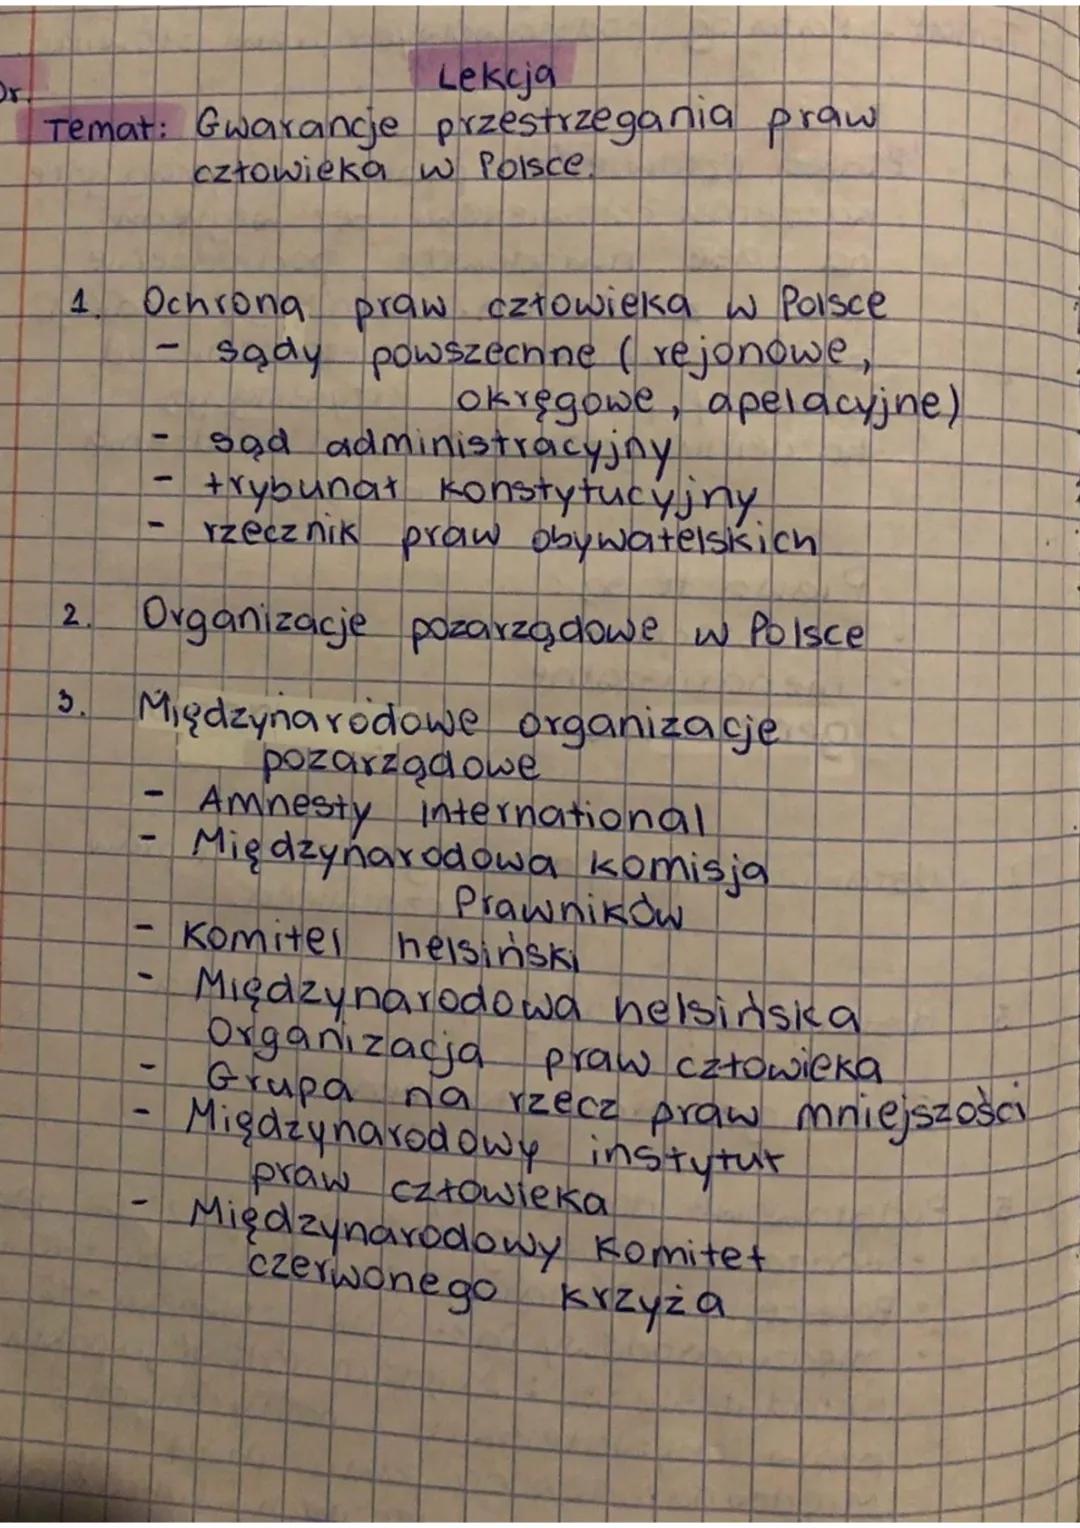 Lekcja
Dr.
Temat: Gwarancje przestrzegania praw
człowieka w Polsce.
1. Ochrona praw człowieka w Polsce
- sądy powszechne (rejonowe,
okręgowe, apelacyjne)
- sąd administracyjny
- trybunał konstytucyjny
- rzecznik praw obywatelskich
2. Organizacje pozarządowe w Polsce
3. Międzynarodowe organizacje
pozarządowe
- Amnesty international
- Międzynarodowa komisja
Prawników
- Komitel helsiński
- Międzynarodowa helsińska
Organizacja praw człowieka
- Grupa na rzecz praw mniejszości
- Międzynarodowy instytut
praw człowieka
- Międzynarodowy Komitet
czerwonego krzyża